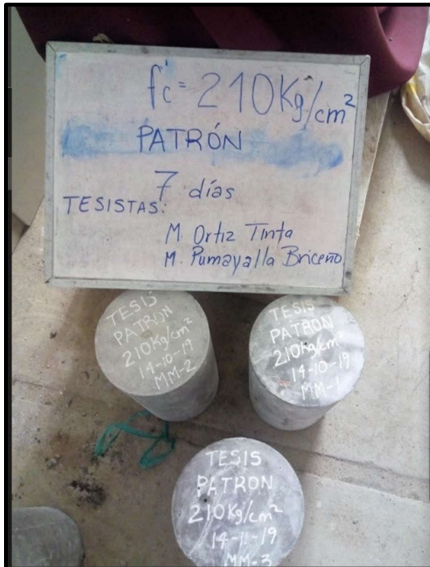 f'c = 210 Kg/cm²
PATRÓN
7 días
TESISTAS:
M Ortiz Tinta
M. Pumayalla Briceño
TESIS
PATRON
210Kg/cm²
14-10-19
MM-2
TESIS
PATRON
210Kg/cm²
14-10-19
MM-1
TESIS
PATRON
210Kg/cm²
14-11-19
MM-3